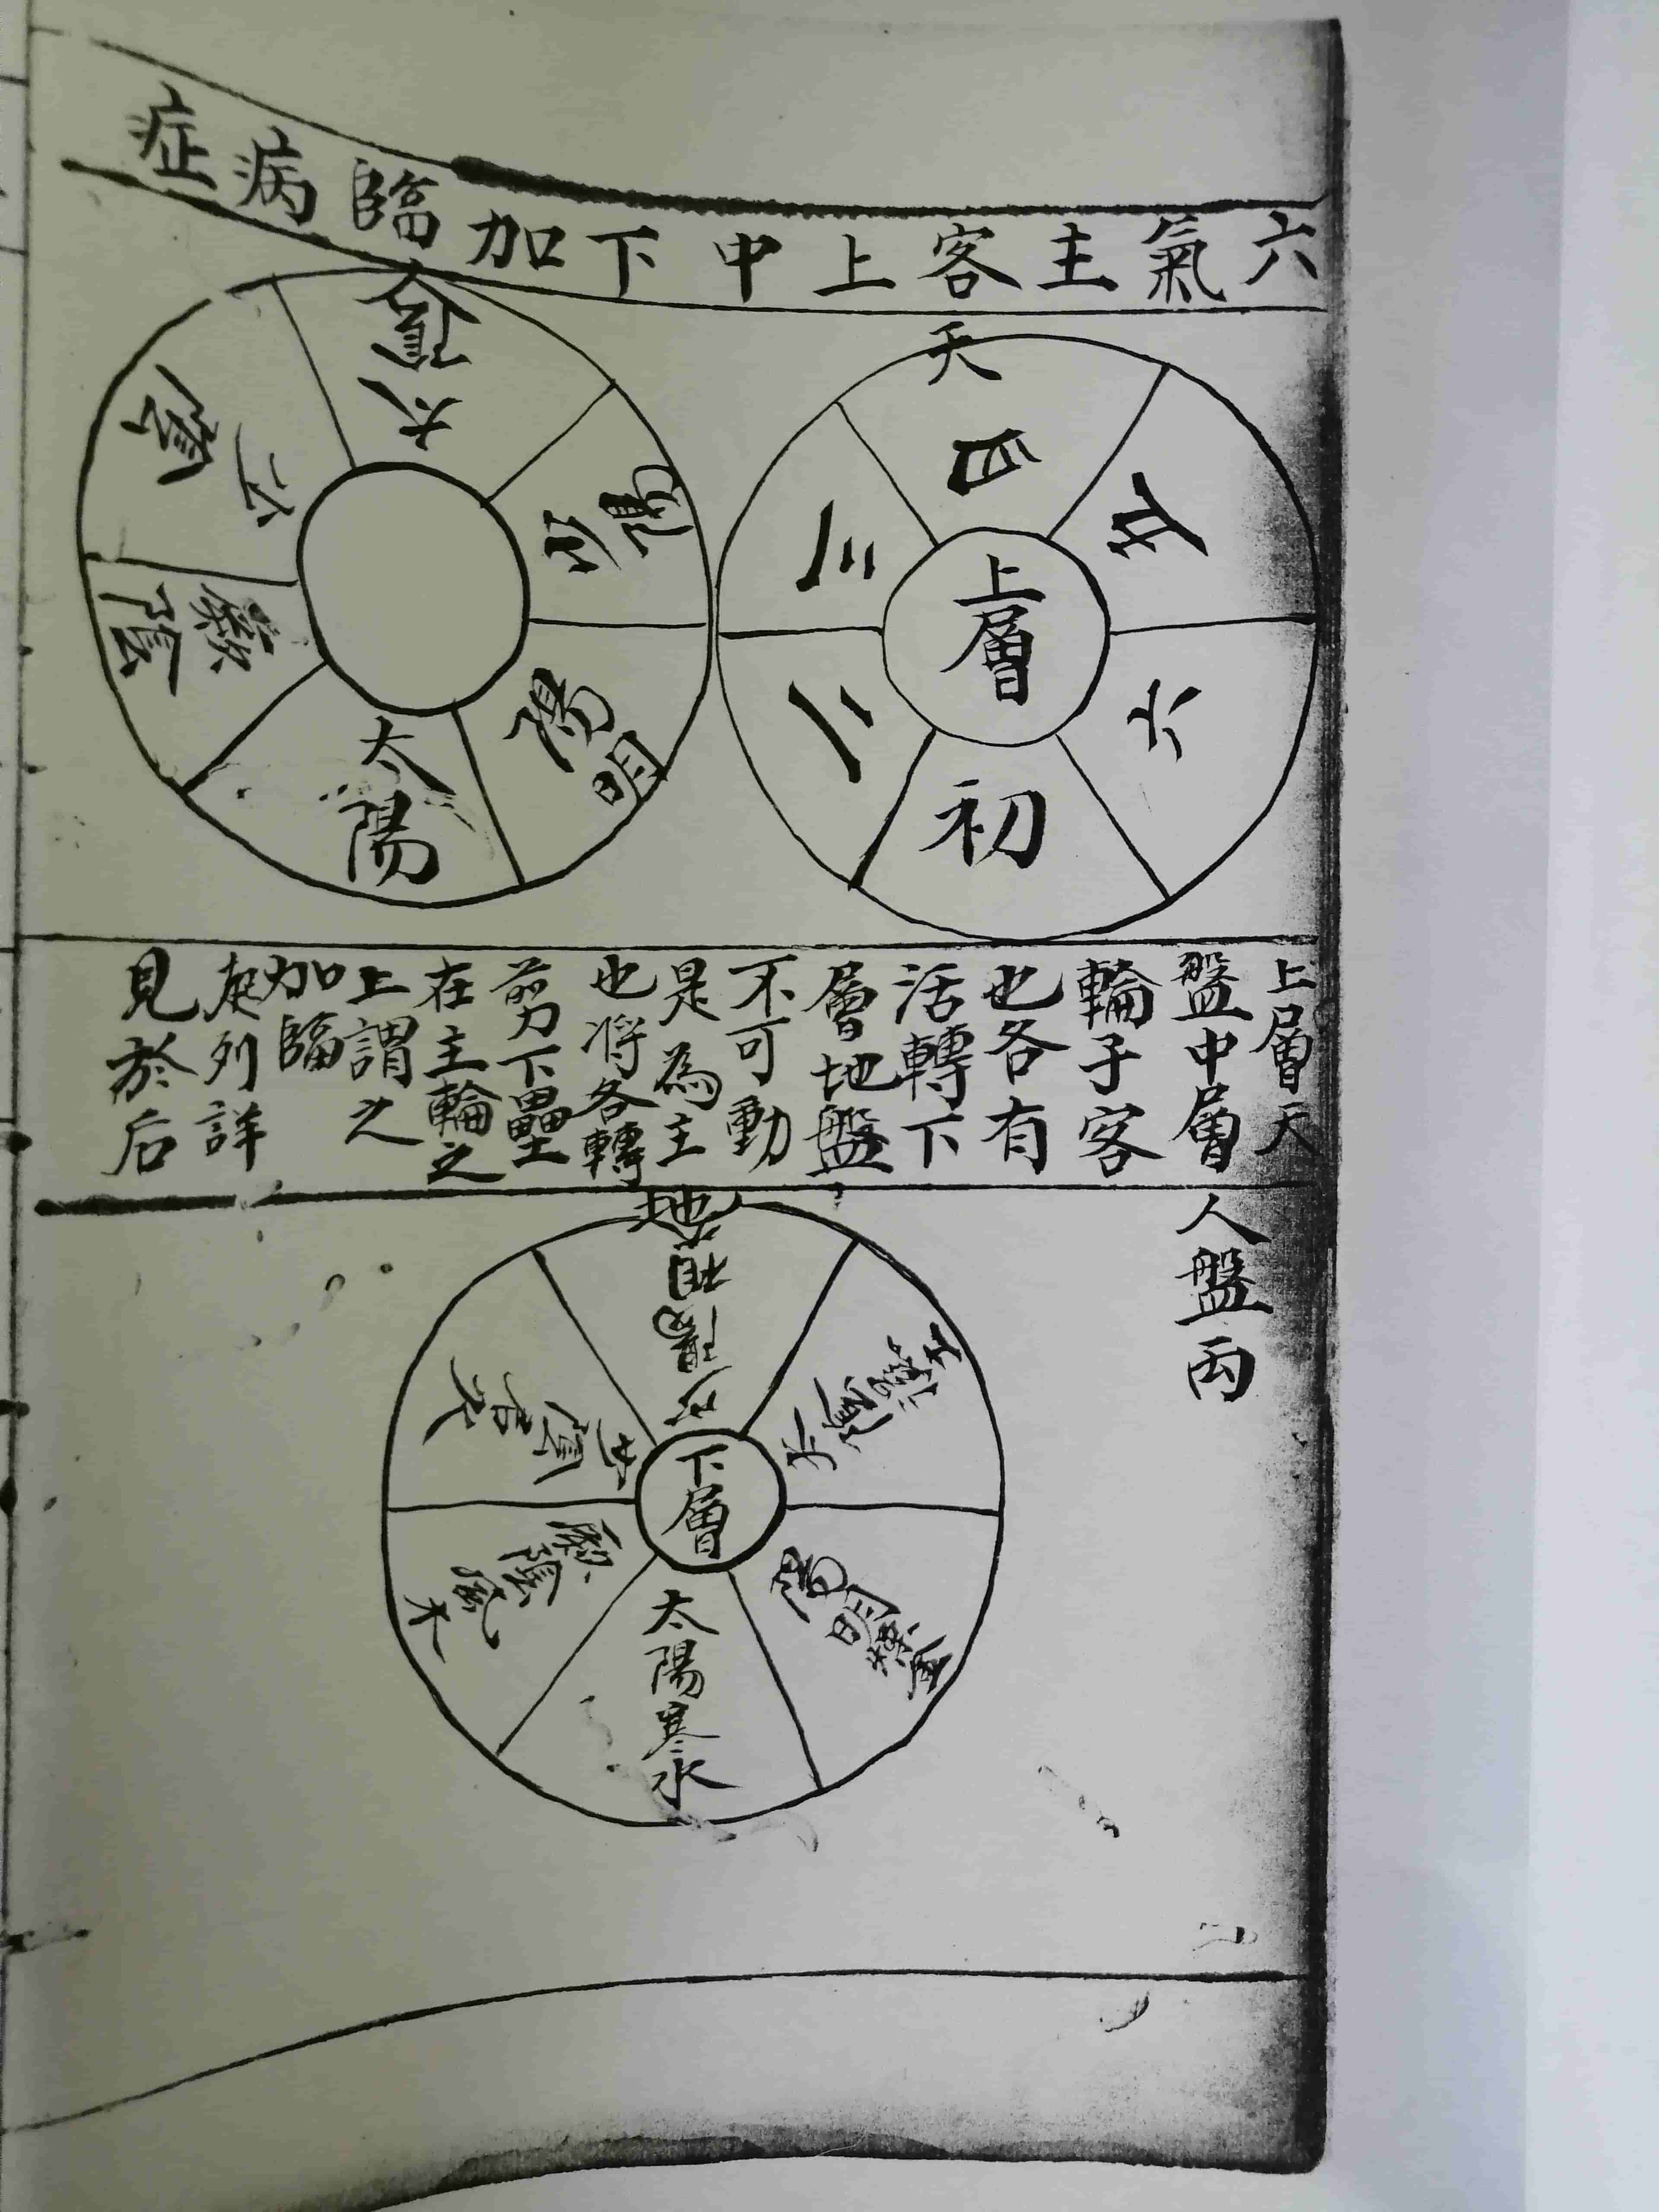 六氣主客上中下加臨病症
天
上層
初
二
三
四
五
六
太陽
厥陰
少陰
太陰
少陽
陽明
上層天
盤中層人盤兩
輪子客
也各有
活轉下
層地盤
不可動
是為主
也将各轉
剪下壘
在主輪之
上謂之
加臨
列詳
見於后
地
下層
太陽寒水
厥陰風木
少陰君火
少陽相火
太陰濕土
陽明燥金